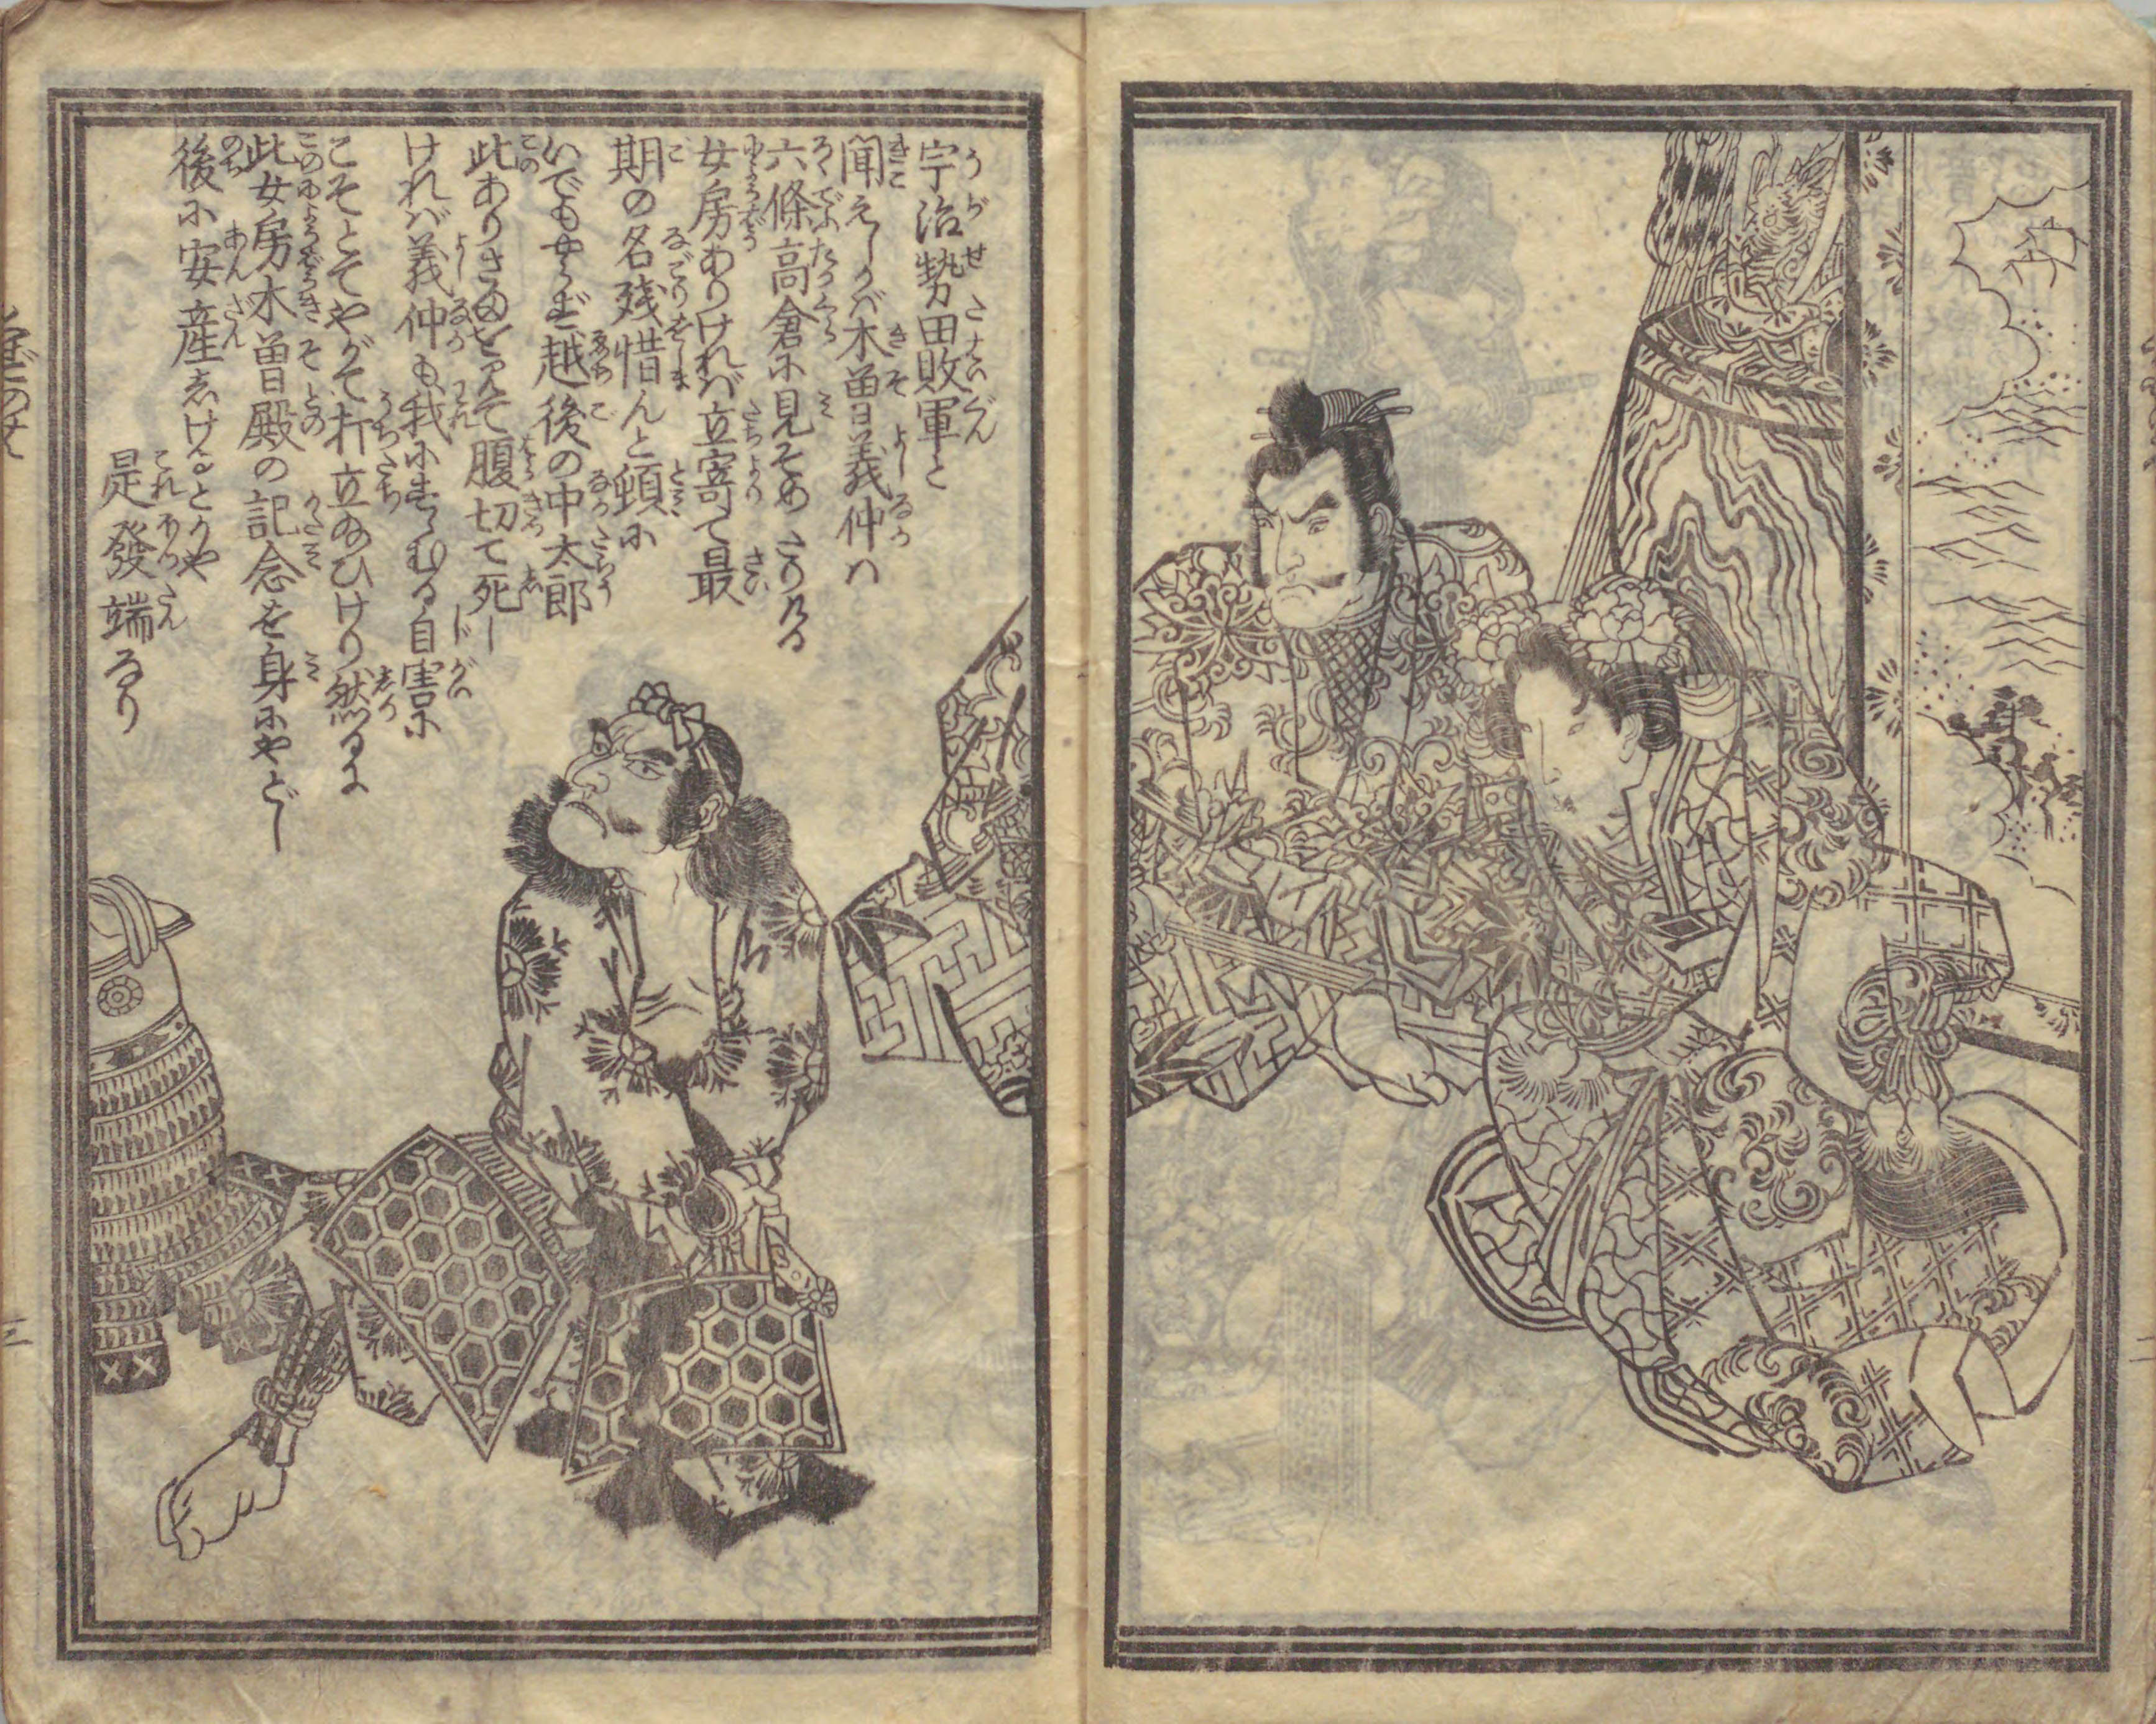 宇治勢田敗軍と
聞えしかバ木曽義仲ハ
六條高倉に見そめたる
女房ありけれバ立寄て最
期の名残惜んと頓に
いでもせざれば越後の中太郎
此ありさまを見て腹切て死し
けれバ義仲も我にすゝむる自害に
こそとてやがて打立給ひけり然るに
此女房木曽殿の記念を身にやどし
後に安産しけるとかや
是發端なり